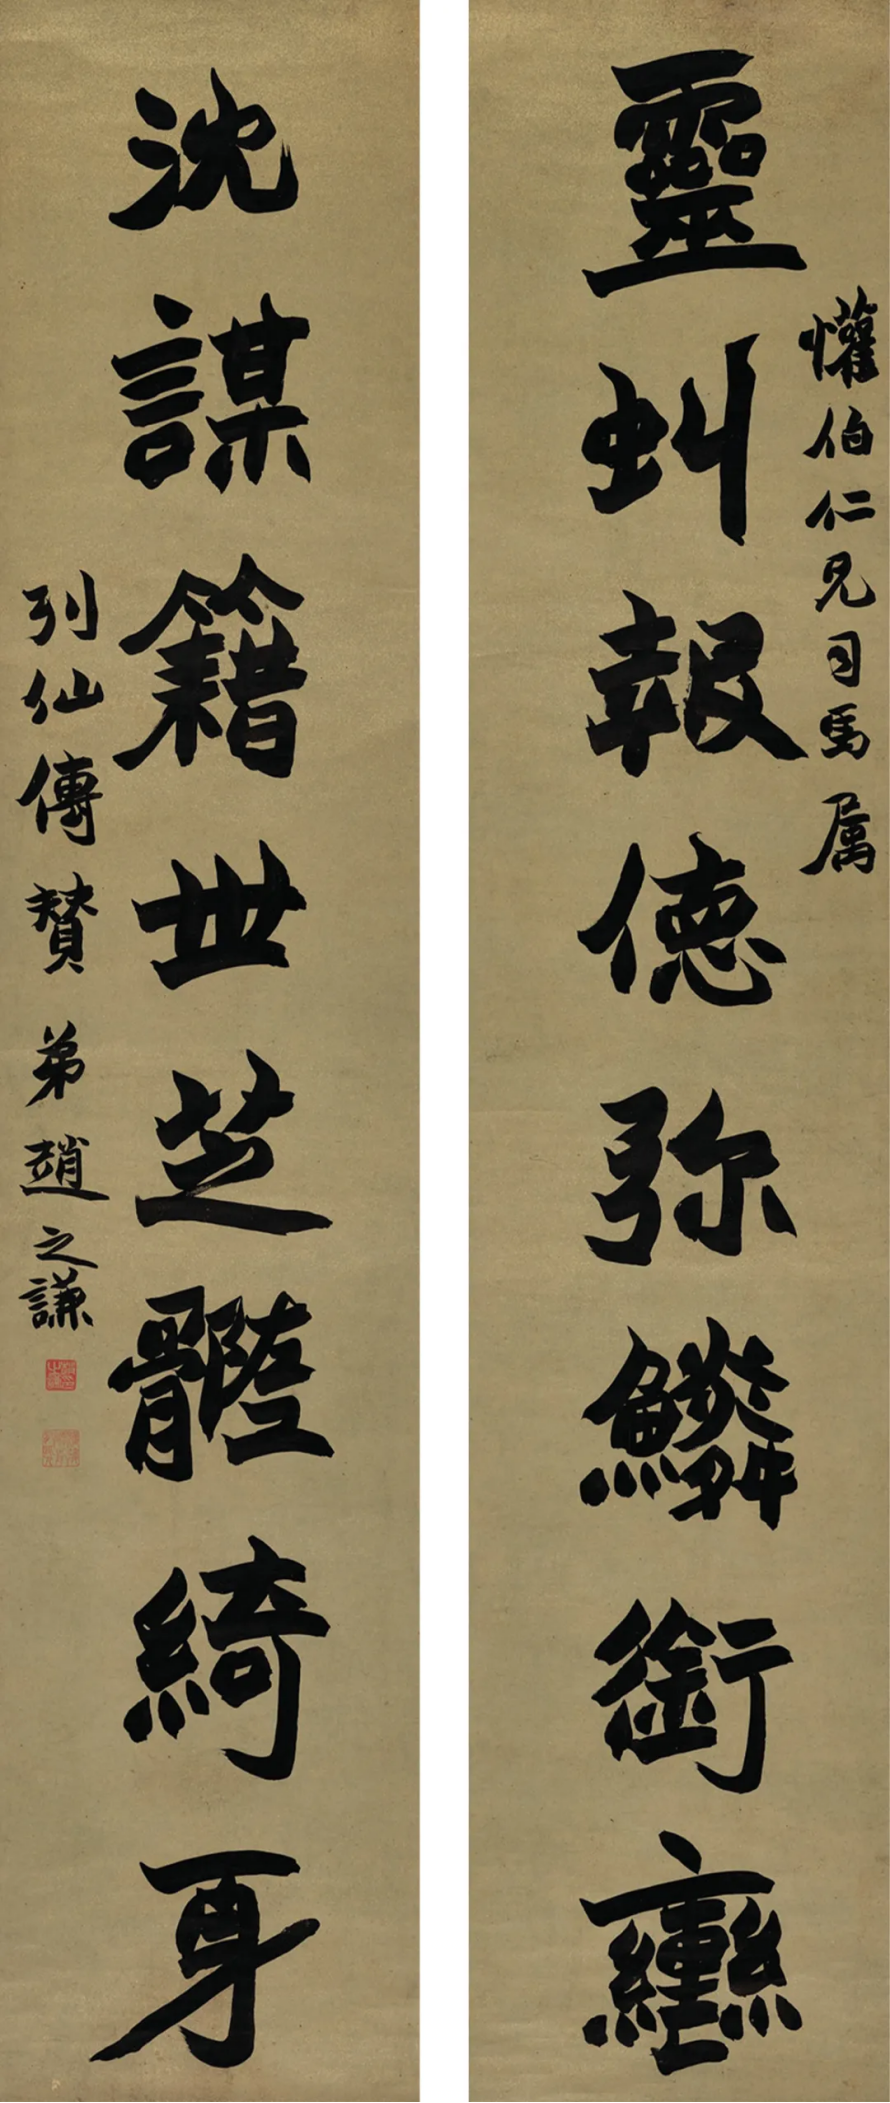 懽伯仁兄司馬属
靈虯報德弥鱗銜轡
沈謀籍世芝髓綺身
列仙傳贊 弟趙之謙